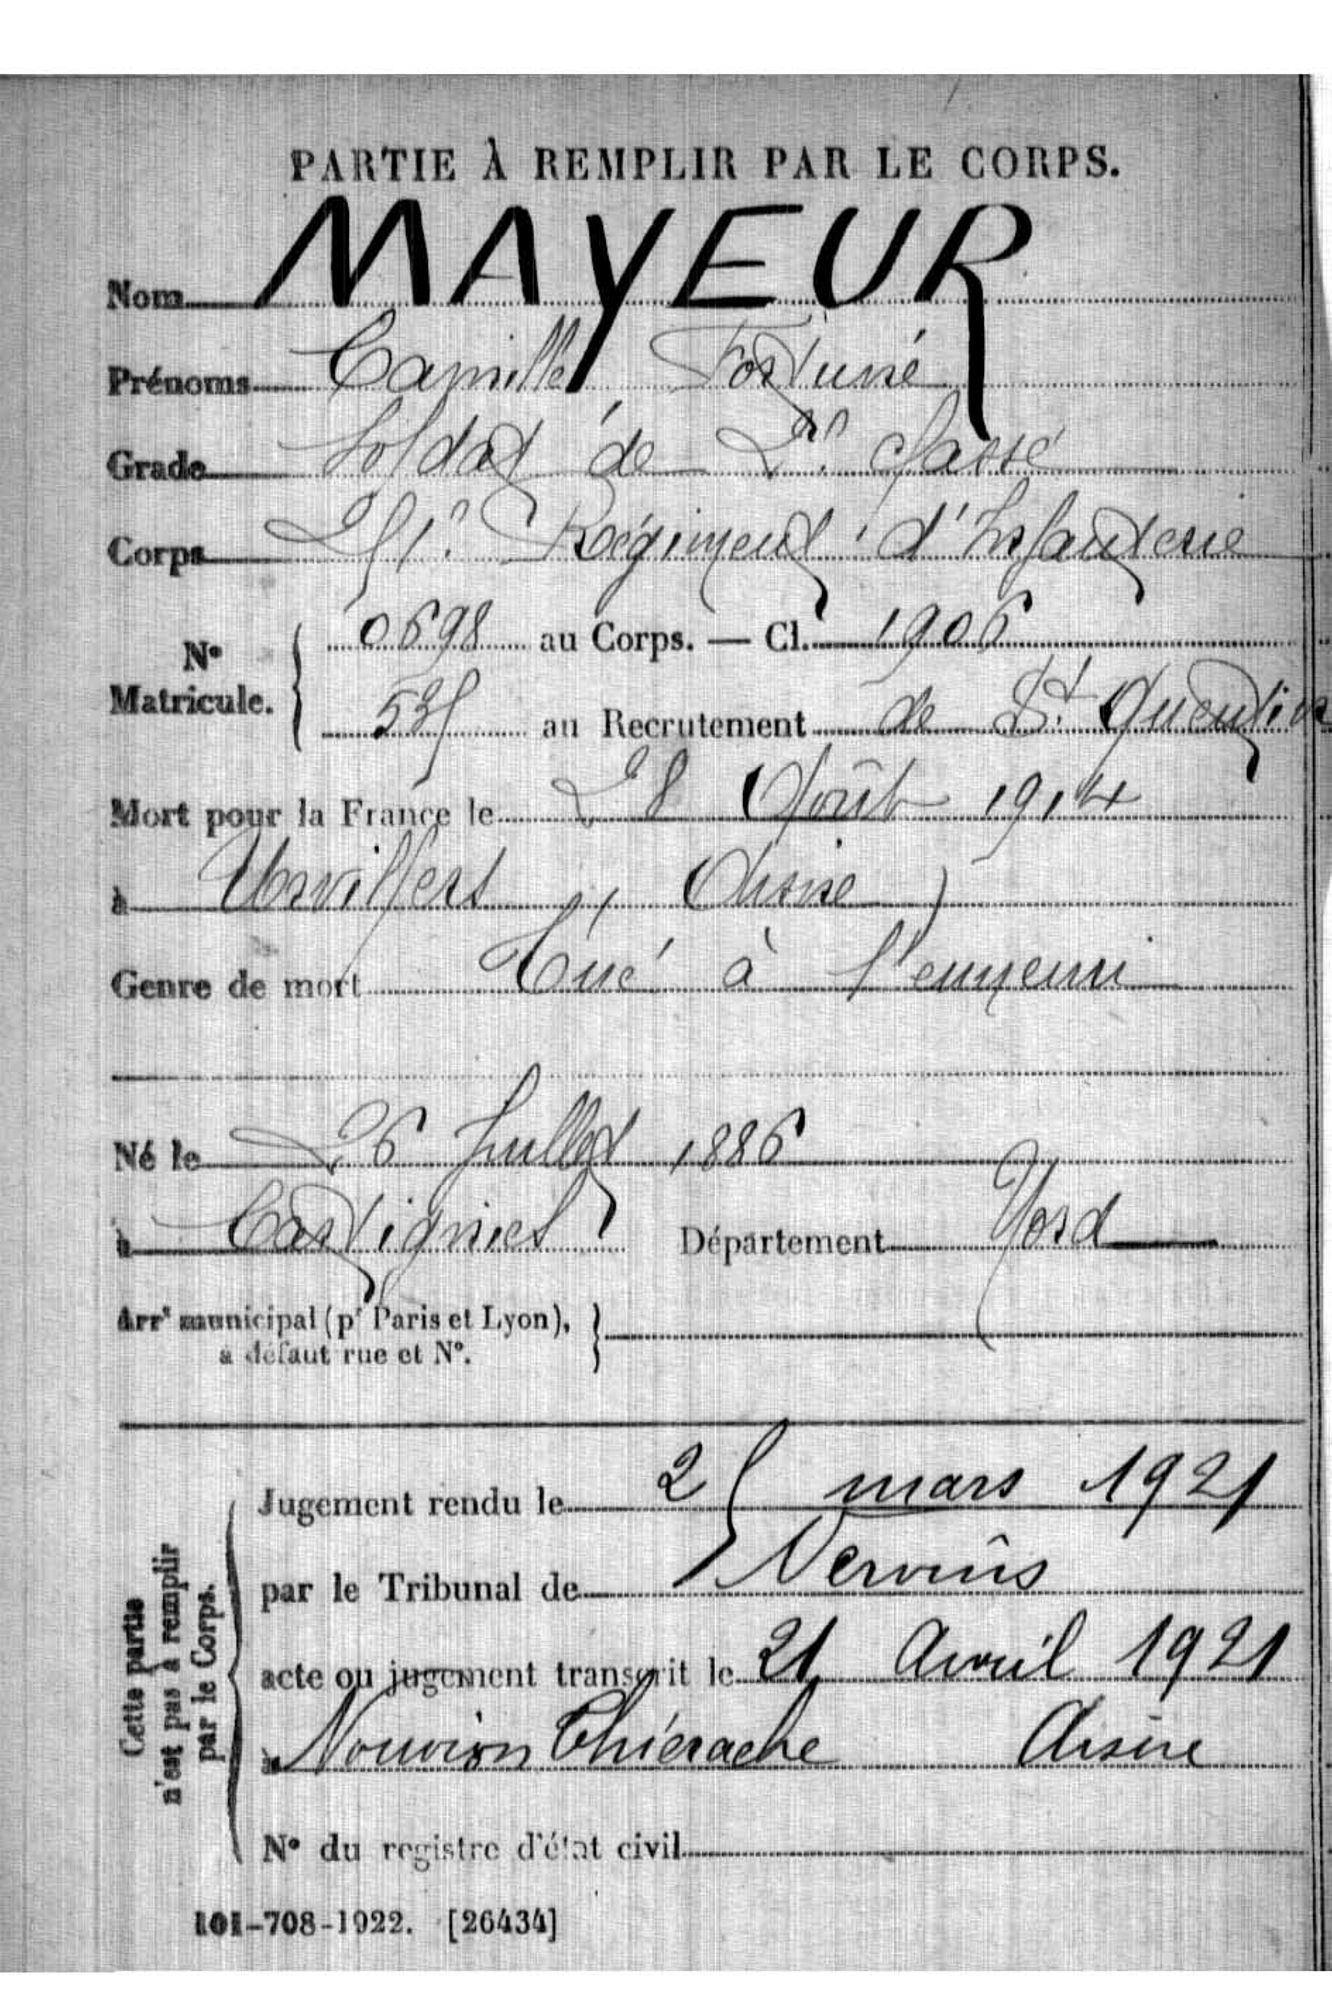 PARTIE À REMPLIR PAR LE CORPS.
Nom MAYEUR
Prénoms Camille Fortuné
Grade Soldat de 2e classe
Corps 251e Régiment d'Infanterie
No Matricule. { 0698 au Corps. — Cl. 1906
au Recrutement de St. Quentin
Mort pour la France le 28 Août 1914
à Urvillers (Aisne)
Genre de mort Tué à l'ennemi
Né le 26 Juillet 1886
à Cartignies Département Nord
Arrt municipal (pr Paris et Lyon), à défaut rue et No. }
Cette partie n'est pas à remplir par le Corps.
Jugement rendu le 25 mars 1921
par le Tribunal de Vervins
acte ou jugement transcrit le 21 Avril 1921
à Nouvion Thiérache Aisne
No du registre d'état civil
101-708-1922. [26434]